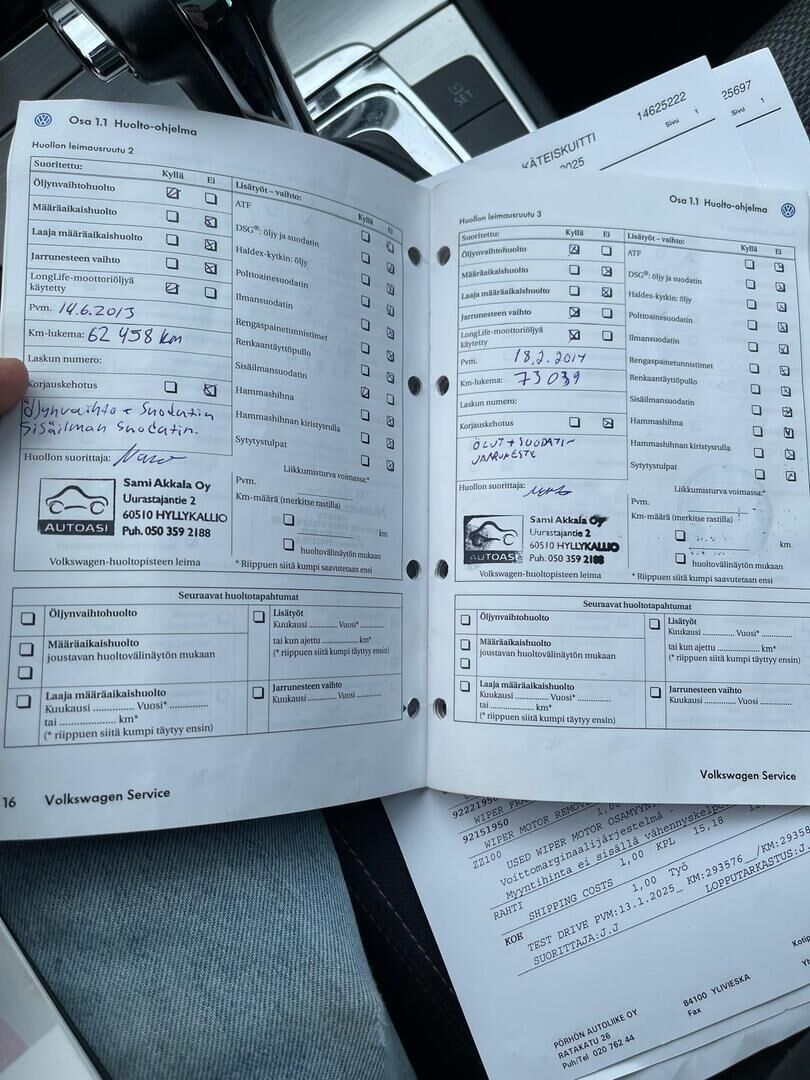 Osa 1.1 Huolto-ohjelma
Huollon leimausruutu 2
Suoritettu:
Kyllä
Ei
Öljynvaihtohuolto
Määräaikaishuolto
Laaja määräaikaishuolto
Jarrunesteen vaihto
LongLife-moottoriöljyä
käytetty
Pvm. 14.6.2013
Km-lukema: 62 458 km
Laskun numero:
Korjauskehotus
Öljynvaihto + Suodatin
Sisäilman Suodatin.
Huollon suorittaja:
AUTOASI
Sami Akkala Oy
Uurastajantie 2
60510 HYLLYKALLIO
Puh. 050 359 2188
Volkswagen-huoltopisteen leima
Lisätyöt – vaihto:
Kyllä
Ei
ATF
DSG®: öljy ja suodatin
Haldex-kytkin: öljy
Polttoainesuodatin
Ilmansuodatin
Rengaspainetunnistimet
Renkaantäyttöpullo
Sisäilmansuodatin
Hammashihna
Hammashihnan kiristysrulla
Sytytystulpat
Liikkumisturva voimassa:*
Pvm.
Km-määrä (merkitse rastilla)
km
huoltovälinäytön mukaan
* Riippuen siitä kumpi saavutetaan ensi
Seuraavat huoltotapahtumat
Öljynvaihtohuolto
Määräaikaishuolto
joustavan huoltovälinäytön mukaan
Laaja määräaikaishuolto
Kuukausi .............. Vuosi* ..............
tai .................... km*
(* riippuen siitä kumpi täytyy ensin)
Lisätyöt
Kuukausi ............ Vuosi* .........
tai kun ajettu ................ km*
(* riippuen siitä kumpi täytyy ensin)
Jarrunesteen vaihto
Kuukausi ............ Vuosi .........
16 Volkswagen Service
Osa 1.1 Huolto-ohjelma
Huollon leimausruutu 3
Suoritettu:
Kyllä
Ei
Öljynvaihtohuolto
Määräaikaishuolto
Laaja määräaikaishuolto
Jarrunesteen vaihto
LongLife-moottoriöljyä
käytetty
Pvm. 18.2.2014
Km-lukema: 73039
Laskun numero:
Korjauskehotus
ÖLJYT + SUODATIN
JARRUNESTE
Huollon suorittaja:
AUTOASI
Sami Akkala Oy
Uurastajantie 2
60510 HYLLYKALLIO
Puh. 050 359 2188
Volkswagen-huoltopisteen leima
Lisätyöt – vaihto:
Kyllä
Ei
ATF
DSG®: öljy ja suodatin
Haldex-kytkin: öljy
Polttoainesuodatin
Ilmansuodatin
Rengaspainetunnistimet
Renkaantäyttöpullo
Sisäilmansuodatin
Hammashihna
Hammashihnan kiristysrulla
Sytytystulpat
Liikkumisturva voimassa:*
Pvm.
Km-määrä (merkitse rastilla)
km
huoltovälinäytön mukaan
* Riippuen siitä kumpi saavutetaan ensi
Seuraavat huoltotapahtumat
Öljynvaihtohuolto
Määräaikaishuolto
joustavan huoltovälinäytön mukaan
Laaja määräaikaishuolto
Kuukausi .............. Vuosi* ..............
tai .................... km*
(* riippuen siitä kumpi täytyy ensin)
Lisätyöt
Kuukausi ............ Vuosi* .........
tai kun ajettu ................ km*
(* riippuen siitä kumpi täytyy ensin)
Jarrunesteen vaihto
Kuukausi ............ Vuosi .........
Volkswagen Service
SET
KÄTEISKUITTI
14625222
Sivu 1
25697
Sivu 1
2025
92151950
WIPER MOTOR
ZZ100
USED WIPER MOTOR
Voittomarginaalijärjestelmä -
Myyntihinta ei sisällä
1,00 KPL 15,18
RAHTI
SHIPPING COSTS 1,00 Työ
KOE
TEST DRIVE PVM:13.1.2025_ KM:293576 __/KM:29358
SUORITTAJA:J.J
LOPPUTARKASTUS:J.
PÖRHÖN AUTOLIIKE OY
RATAKATU 26
Puh/Tel 020 762 44
84100 YLIVIESKA
Fax